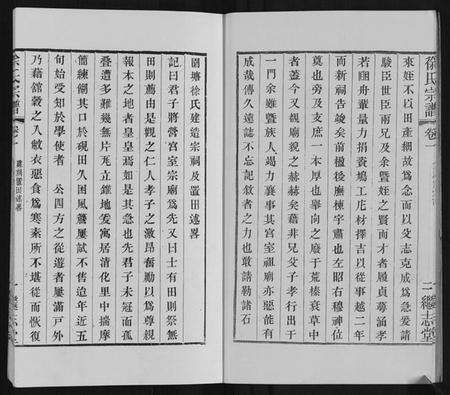 徐氏宗譜
卷一
三
繼志堂
來姪不以田產絪故爲念而以殳志克成爲急爰請
駿臣世臣兩兄及余暨姪之賢而才者履貞蓴涵孝
若囤舟輩量力捐資鳩工庀材擇吉以從事越二年
而新祠告竣矣前楹後廡棟宇肅也左昭右穆神位
奠也旁及支庶一本厚也舉向之廢于荒榛衰草中
者蓋今又覩廟貌之赫赫矣葢非兄父子孝行出于
一門余雖暨族人竭力襄事其宮室祖廟亦惡能有
成哉傳久遠誌不忘記敘者之力也敢請勒諸石
劉塘徐氏建造宗祠及置田述畧
記曰君子將營宮室宗廟爲先又曰士有田則祭無
田則薦由是觀之仁人孝子之激昂奮勵以爲尊親
報本之地者皇皇焉如是其急也先君子未冠而孤
疊遭多難幾無片瓦立錐地爰寓居清化里中揣摩
簡練餬其口於硯田久困風簷屢試不售迨年近五
旬始受知於學使者 公四方之從遊者屢滿戸外
乃藉舘穀之入敝衣惡食爲寒素所不堪從而恢復
徐氏宗譜
卷一
建祠置田述畧
一